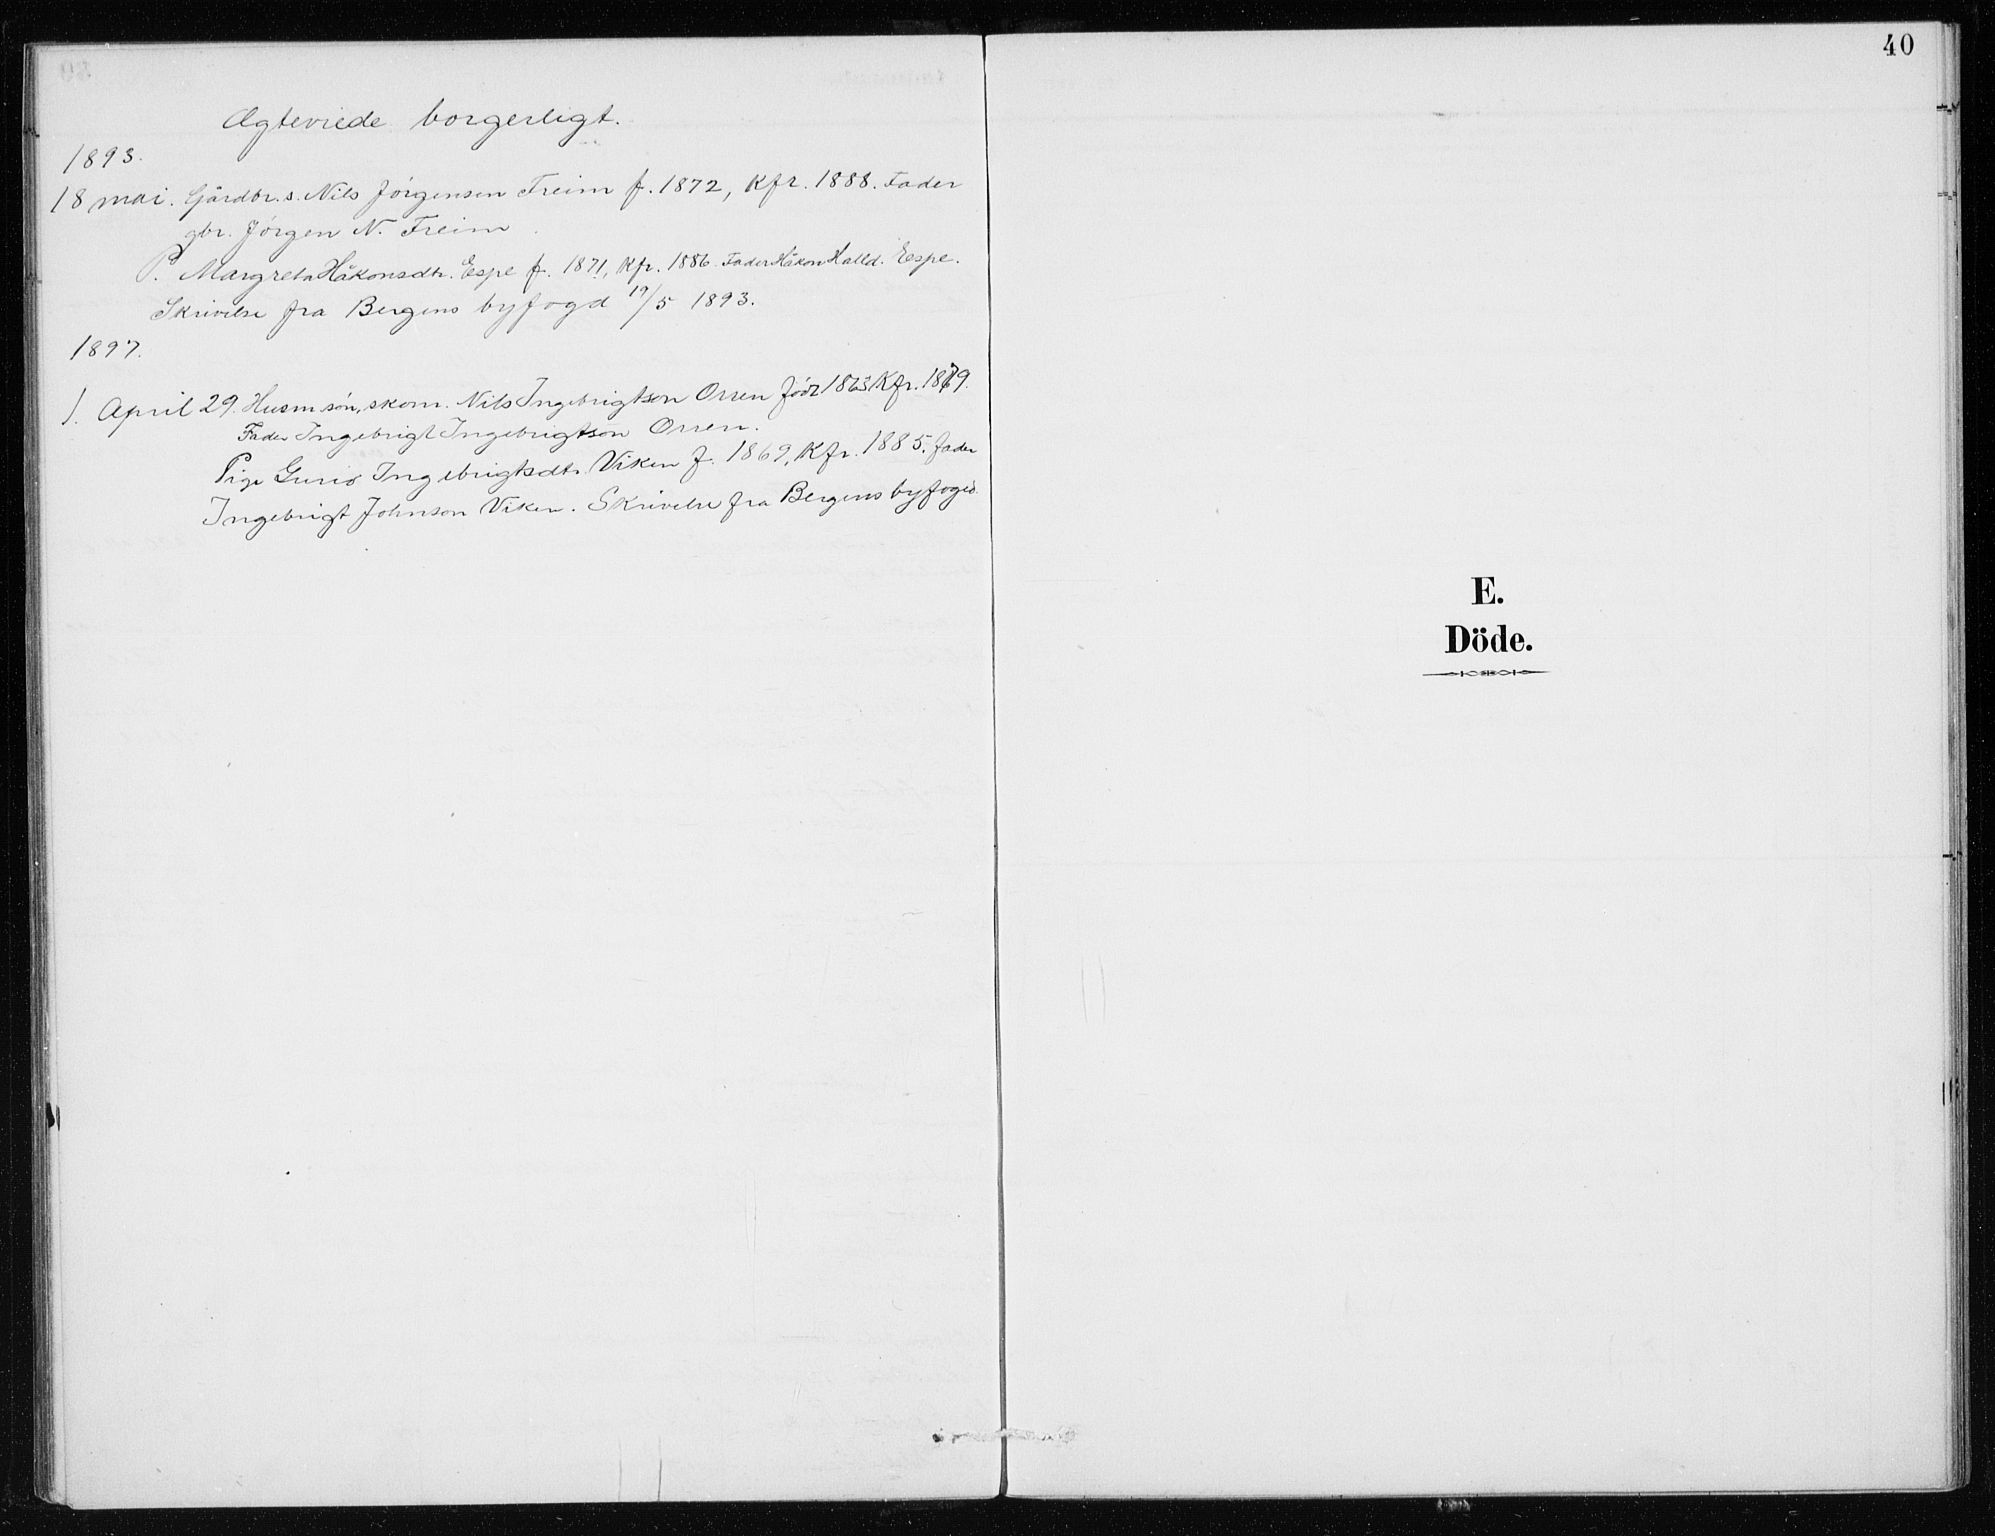 Ægteviede borgerligt.
1893.
18 mai. Gårdbr.s. Nils Jørgensen Freim f. 1872, Kfr. 1888. Fader
gbr. Jørgen N. Freim
P. Margreta Håkonsdtr. Espe f. 1871, Kfr. 1886. Fader Håkon Halld. Espe.
Skrivelse fra Bergens byfogd 19/5 1893.
1897.
1. April 29. Husm søn, skom. Nils Ingebrigtson Orren født 1863 Kfr. 1879.
Fader Ingebrigt Ingebrigtson Orren.
Pige Guro Ingebrigtsdtr. Viken f. 1869, Kfr. 1885. fader
Ingebrigt Johnson Viken. Skrivelse fra Bergens byfoged.
40
E.
Döde.